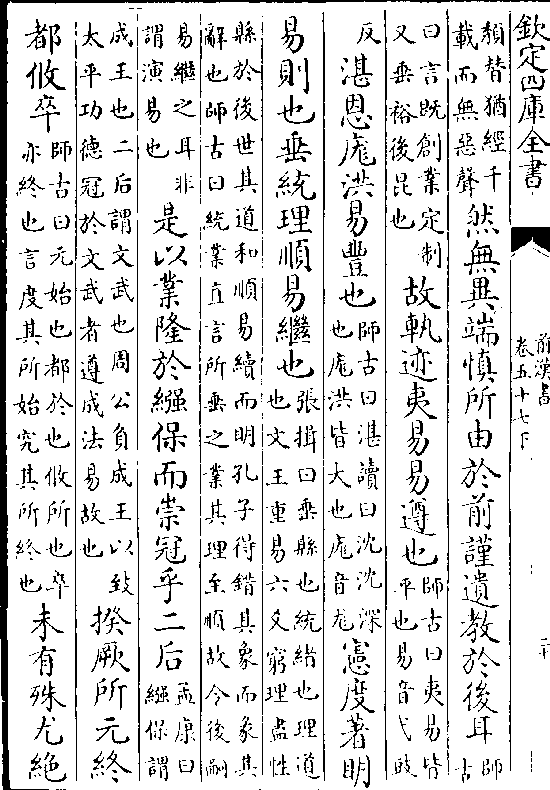 欽定四庫全書
前漢書
卷五十七下
二十
頹替猶經千
載而無惡聲
然無異端慎所由於前謹遺教於後耳
師
古
曰言既創業定制
又垂裕後昆也
故軌迹夷易易遵也
師古曰夷易皆
平也易音弋豉
反
湛恩厖洪易豐也
師古曰湛讀曰沈沈深
也厖洪皆大也厖音尨
憲度著明
易則也垂統理順易繼也
張揖曰垂縣也統緒也理道
也文王重易六爻窮理盡性
縣於後世其道和順易續而明孔子得錯其象而彖其
辭也師古曰統業直言所垂之業其理至順故令後嗣
易繼之耳非
謂演易也
是以業隆於繈保而崇冠乎二后
孟康曰
繈保謂
成王也二后謂文武也周公負成王以致
太平功德冠於文武者遵成法易故也
揆厥所元終
都攸卒
師古曰元始也都於也攸所也卒
亦終也言度其所始究其所終也
未有殊尤絶